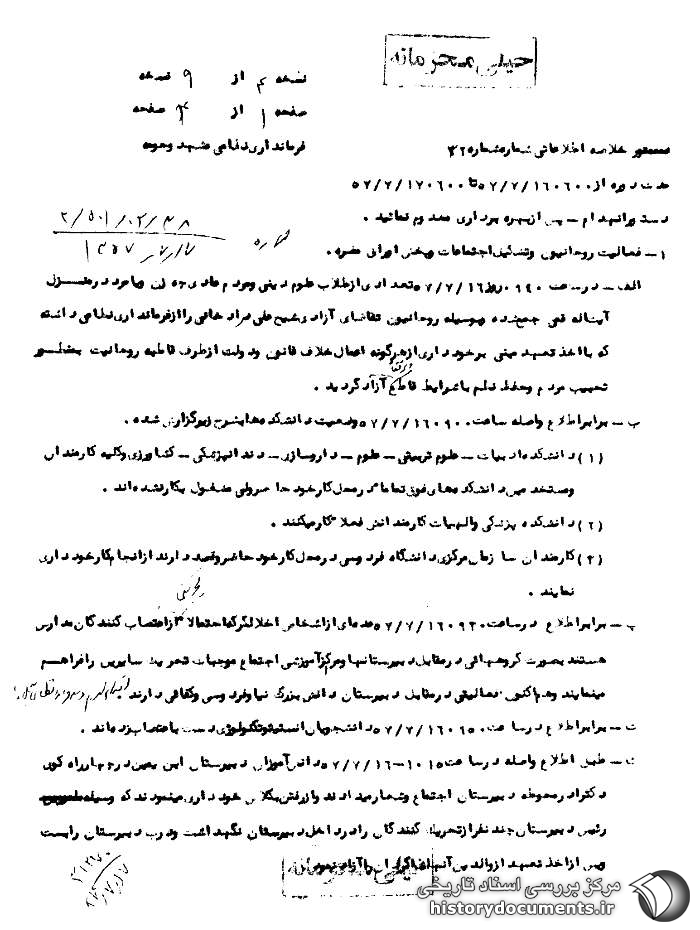 خیلی محرمانه
نسخه ۴ از ۹ نسخه
صفحه ۱ از ۴ صفحه
فرمانداری نظامی مشهد وحومه
خلاصه اطلاعاتی شماره ۴۲
مدت دوره از ۵۷/۷/۱۶۰۶۰۰ تا ۵۷/۷/۱۷۰۶۰۰
دستور انهدام – پس از بهره برداری معدوم نمائید .
۲/۵۰۱/۰۲/۴۸
شماره
۱۳۵۷/۷/۱۷
۱ – فعالیت روحانیون وتشکیل اجتماعات وپخش اوراق مضره .
الف – در ساعت ۰۹۴۰ روز ۵۷/۷/۱۶ تعدادی از طلاب علوم دینی ومردم عادی چه زن وچه مرد در منزل
آیت اله قمی جمع شده وبوسیله روحانیون تقاضای آزادی شیخ علی مراد خانی را از فرمانداری نظامی داشته
که با اخذ تعهد مبنی برخودداری از هرگونه اعمال خلاف قانون ودولت از طرف قاطبه روحانیت بمنظور
تحبیب مردم وحفظ نظم با شرایط قاطع آزاد گردید .
ب – برابر اطلاع واصله ساعت ۵۷/۷/۱۶۰۹۰۰ وضعیت دانشکده ها بشرح زیر گزارش شده .
(۱) دانشکده ادبیات – علوم تربیتی – علوم – داروسازی – دندانپزشکی – کشاورزی وکلیه کارمندان
ومستخدمین دانشکده های فوق تماما در محل کار خود حاضر ولی مشغول بکار نشده اند .
(۲) دانشکده پزشکی والهیات کارمندانش فعلا کار میکنند .
(۳) کارمندان سازمان مرکزی دانشگاه فردوسی در محل کار خود حاضر وقصد دارند از انجام کار خودداری
نمایند .
پ – برابر اطلاع در ساعت ۵۷/۷/۱۶۰۹۳۰ عده ای از اشخاص اخلالگر که احتمالا از اعتصاب کنندگان مدارس
هستند بصورت گروههائی در مقابل دبیرستانها ومرکز آموزشی اجتماع موجبات تحریک سایرین را فراهم
مینمایند وهم اکنون فعالیتی در مقابل دبیرستان دانش بزرگ نیا وفردوسی وکفائی دارند
ت – برابر اطلاع در ساعت ۵۷/۷/۱۶۰۹۵۰ دانشجویان انستیتو تکنولوژی دست به اعتصاب زده اند .
ث – طبق اطلاع واصله در ساعت ۱۰۱۵–۵۷/۷/۱۶ دانش آموزان دبیرستان ابن یمین در چهارراه کوی
دکترا در محوطه دبیرستان اجتماع وشعار میدادند واز رفتن بکلاس خودداری مینمودند که
رئیس دبیرستان چند نفر از تحریک کنندگان را در داخل دبیرستان نگهداشت ودرب دبیرستان را بست
وپس از اخذ تعهد از والدین آنها
۵۷/۷/۱۷
خیلی محرمانه
مرکز بررسی اسناد تاریخی
historydocuments.ir